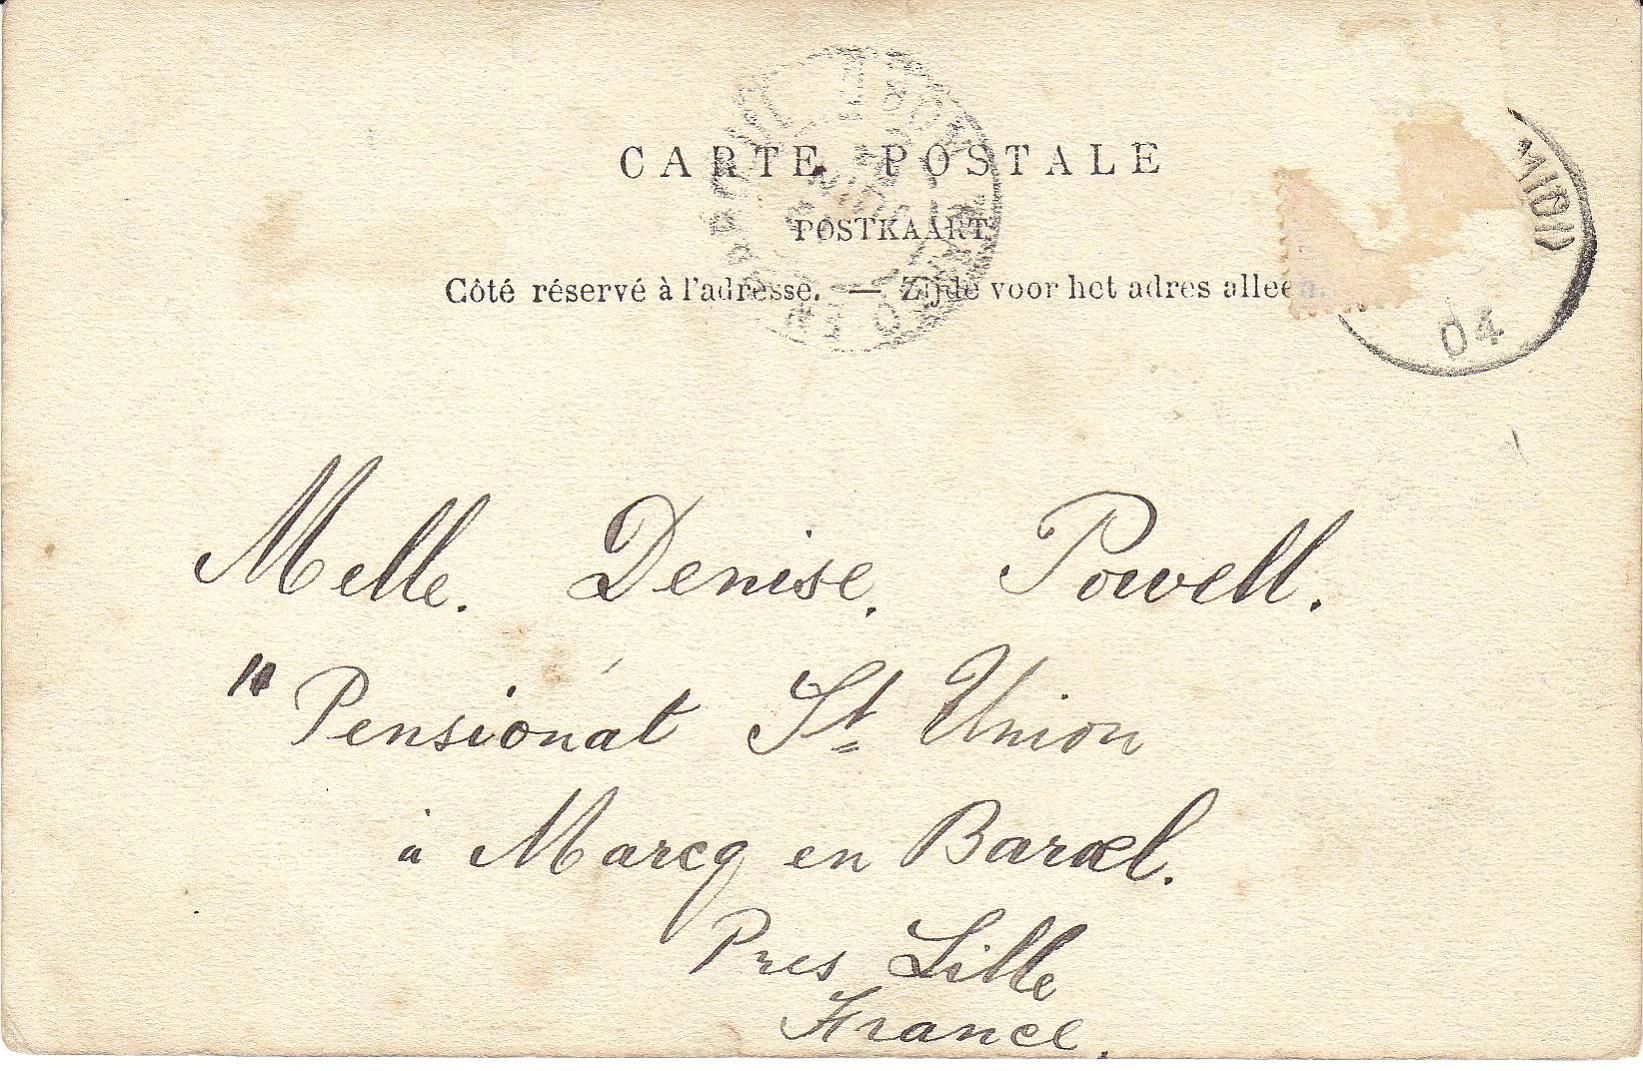 CARTE POSTALE
POSTKAART
Côté réservé à l'adresse. — Zijde voor het adres alleen.
MIDI)
04
Melle. Denise. Powell.
" Pensionat St Union
à Marcq en Barœl.
Pres Lille
France.